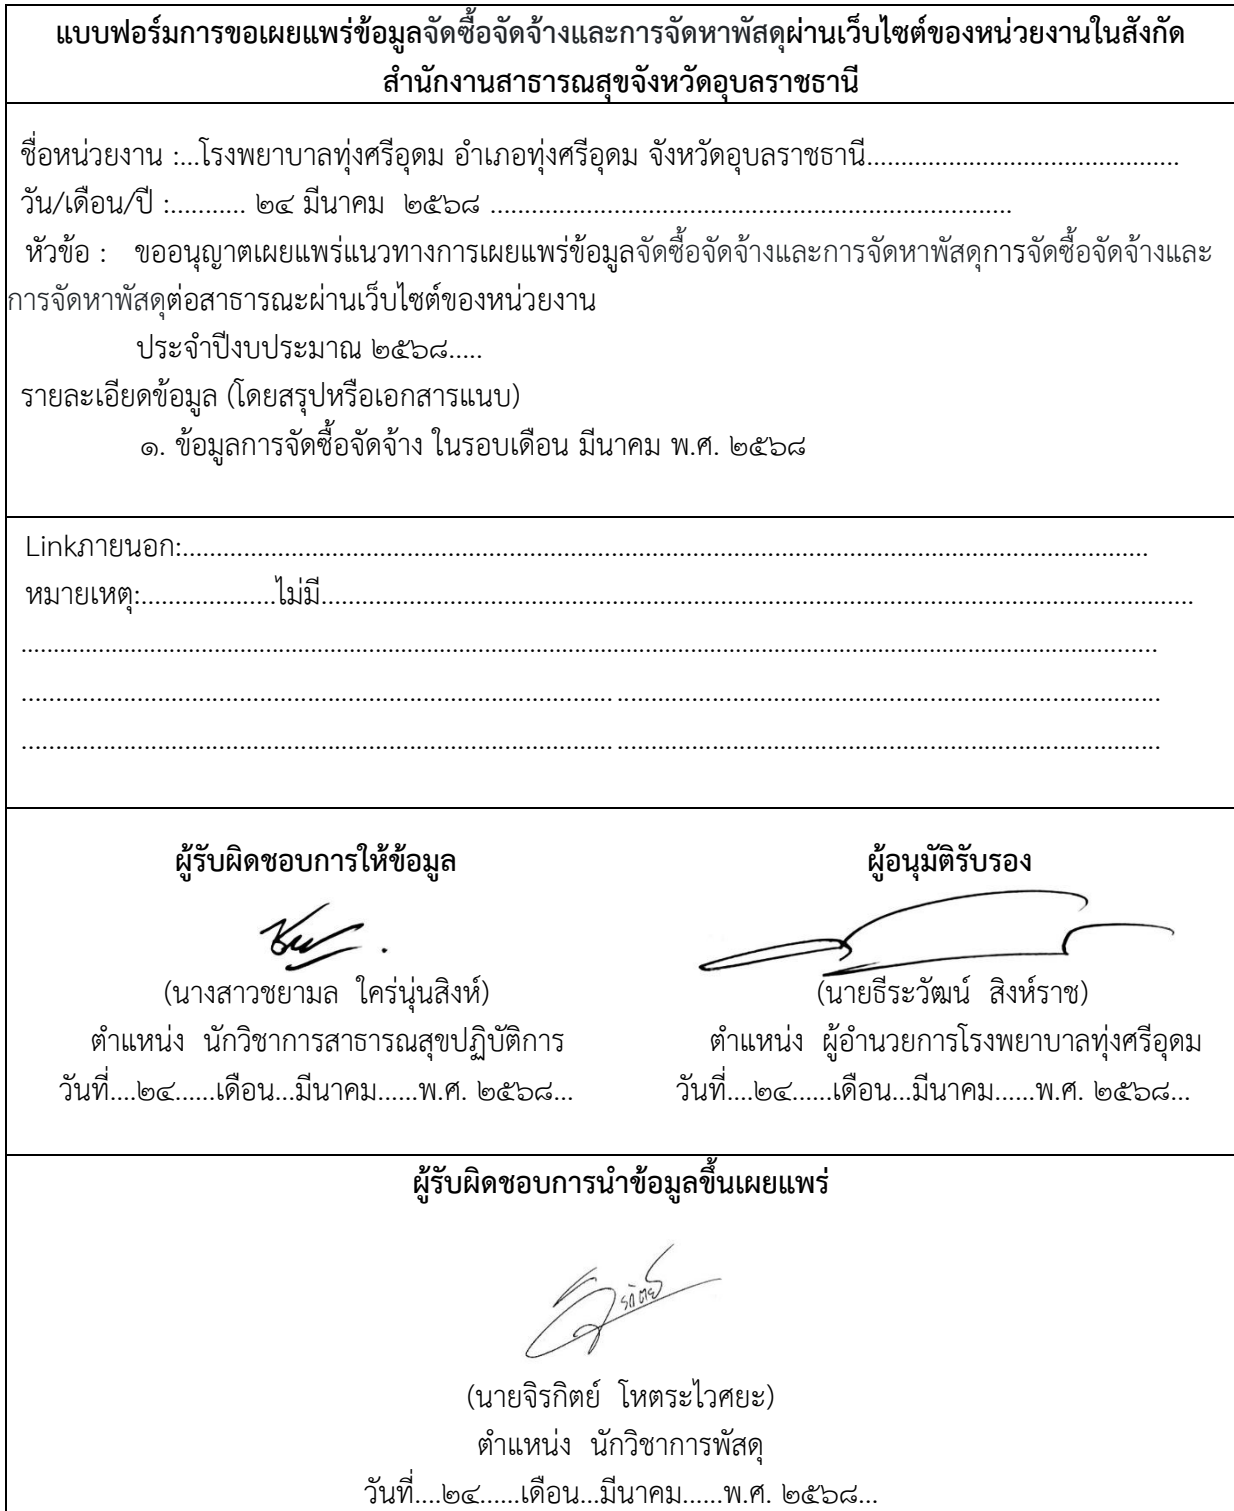 แบบฟอร์มการขอเผยแพร่ข้อมูลจัดซื้อจัดจ้างและการจัดหาพัสดุผ่านเว็บไซต์ของหน่วยงานในสังกัด
สำนักงานสาธารณสุขจังหวัดอุบลราชธานี
ชื่อหน่วยงาน :...โรงพยาบาลทุ่งศรีอุดม อำเภอทุ่งศรีอุดม จังหวัดอุบลราชธานี.............................................
วัน/เดือน/ปี :........... ๒๔ มีนาคม ๒๕๖๘ ...........................................................................
หัวข้อ : ขออนุญาตเผยแพร่แนวทางการเผยแพร่ข้อมูลจัดซื้อจัดจ้างและการจัดหาพัสดุการจัดซื้อจัดจ้างและ
การจัดหาพัสดุต่อสาธารณะผ่านเว็บไซต์ของหน่วยงาน
ประจำปีงบประมาณ ๒๕๖๘.....
รายละเอียดข้อมูล (โดยสรุปหรือเอกสารแนบ)
๑. ข้อมูลการจัดซื้อจัดจ้าง ในรอบเดือน มีนาคม พ.ศ. ๒๕๖๘
Linkภายนอก:...........................................................................................................................................
หมายเหตุ:....................ไม่มี..............................................................................................................................
ผู้รับผิดชอบการให้ข้อมูล ผู้อนุมัติรับรอง
(นางสาวชยามล ใคร่นุ่นสิงห์) (นายธีระวัฒน์ สิงห์ราช)
ตำแหน่ง นักวิชาการสาธารณสุขปฏิบัติการ ตำแหน่ง ผู้อำนวยการโรงพยาบาลทุ่งศรีอุดม
วันที่....๒๔......เดือน...มีนาคม......พ.ศ. ๒๕๖๘... วันที่....๒๔......เดือน...มีนาคม......พ.ศ. ๒๕๖๘...
ผู้รับผิดชอบการนำข้อมูลขึ้นเผยแพร่
(นายจิรกิตย์ โหตระไวศยะ)
ตำแหน่ง นักวิชาการพัสดุ
วันที่....๒๔......เดือน...มีนาคม......พ.ศ. ๒๕๖๘...